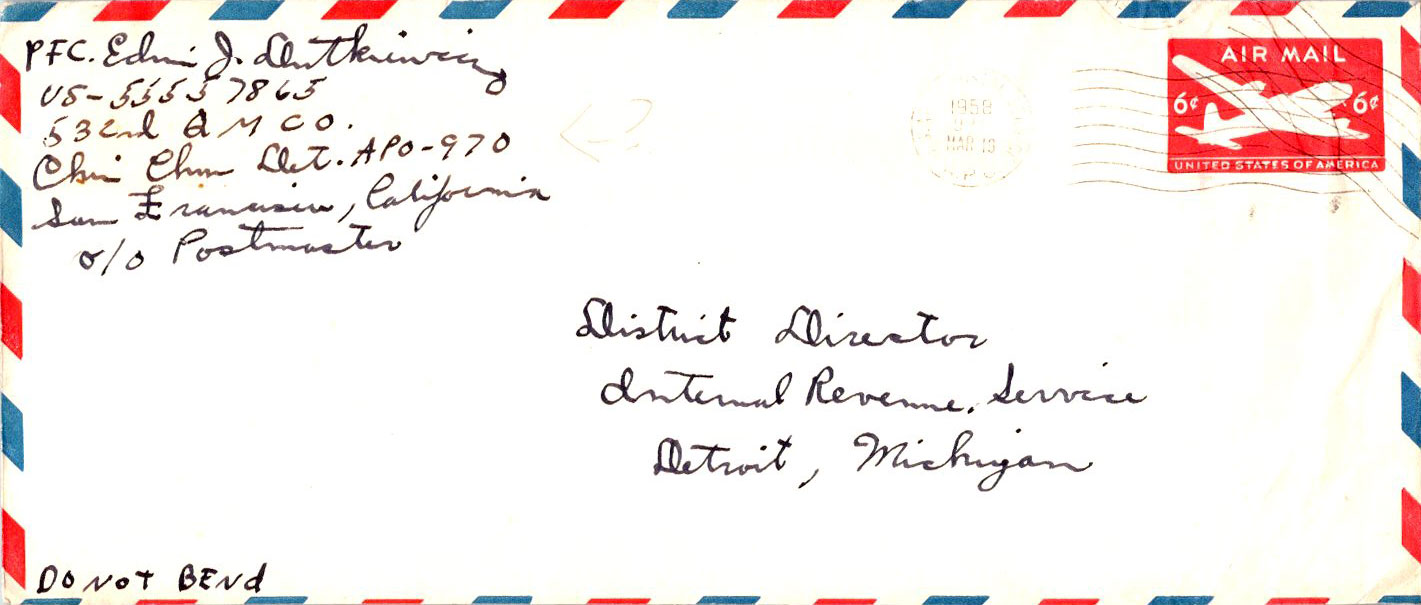 PFC. Edwin J. Dutkiewicz
US-55557865
532nd Q M CO.
Chin Chun Det. APO-970
San Francisco, California
c/o Postmaster
1958
MAR 18
AIR MAIL
6¢ 6¢
UNITED STATES OF AMERICA
District Director
Internal Revenue Service
Detroit, Michigan
DO NOT BENd